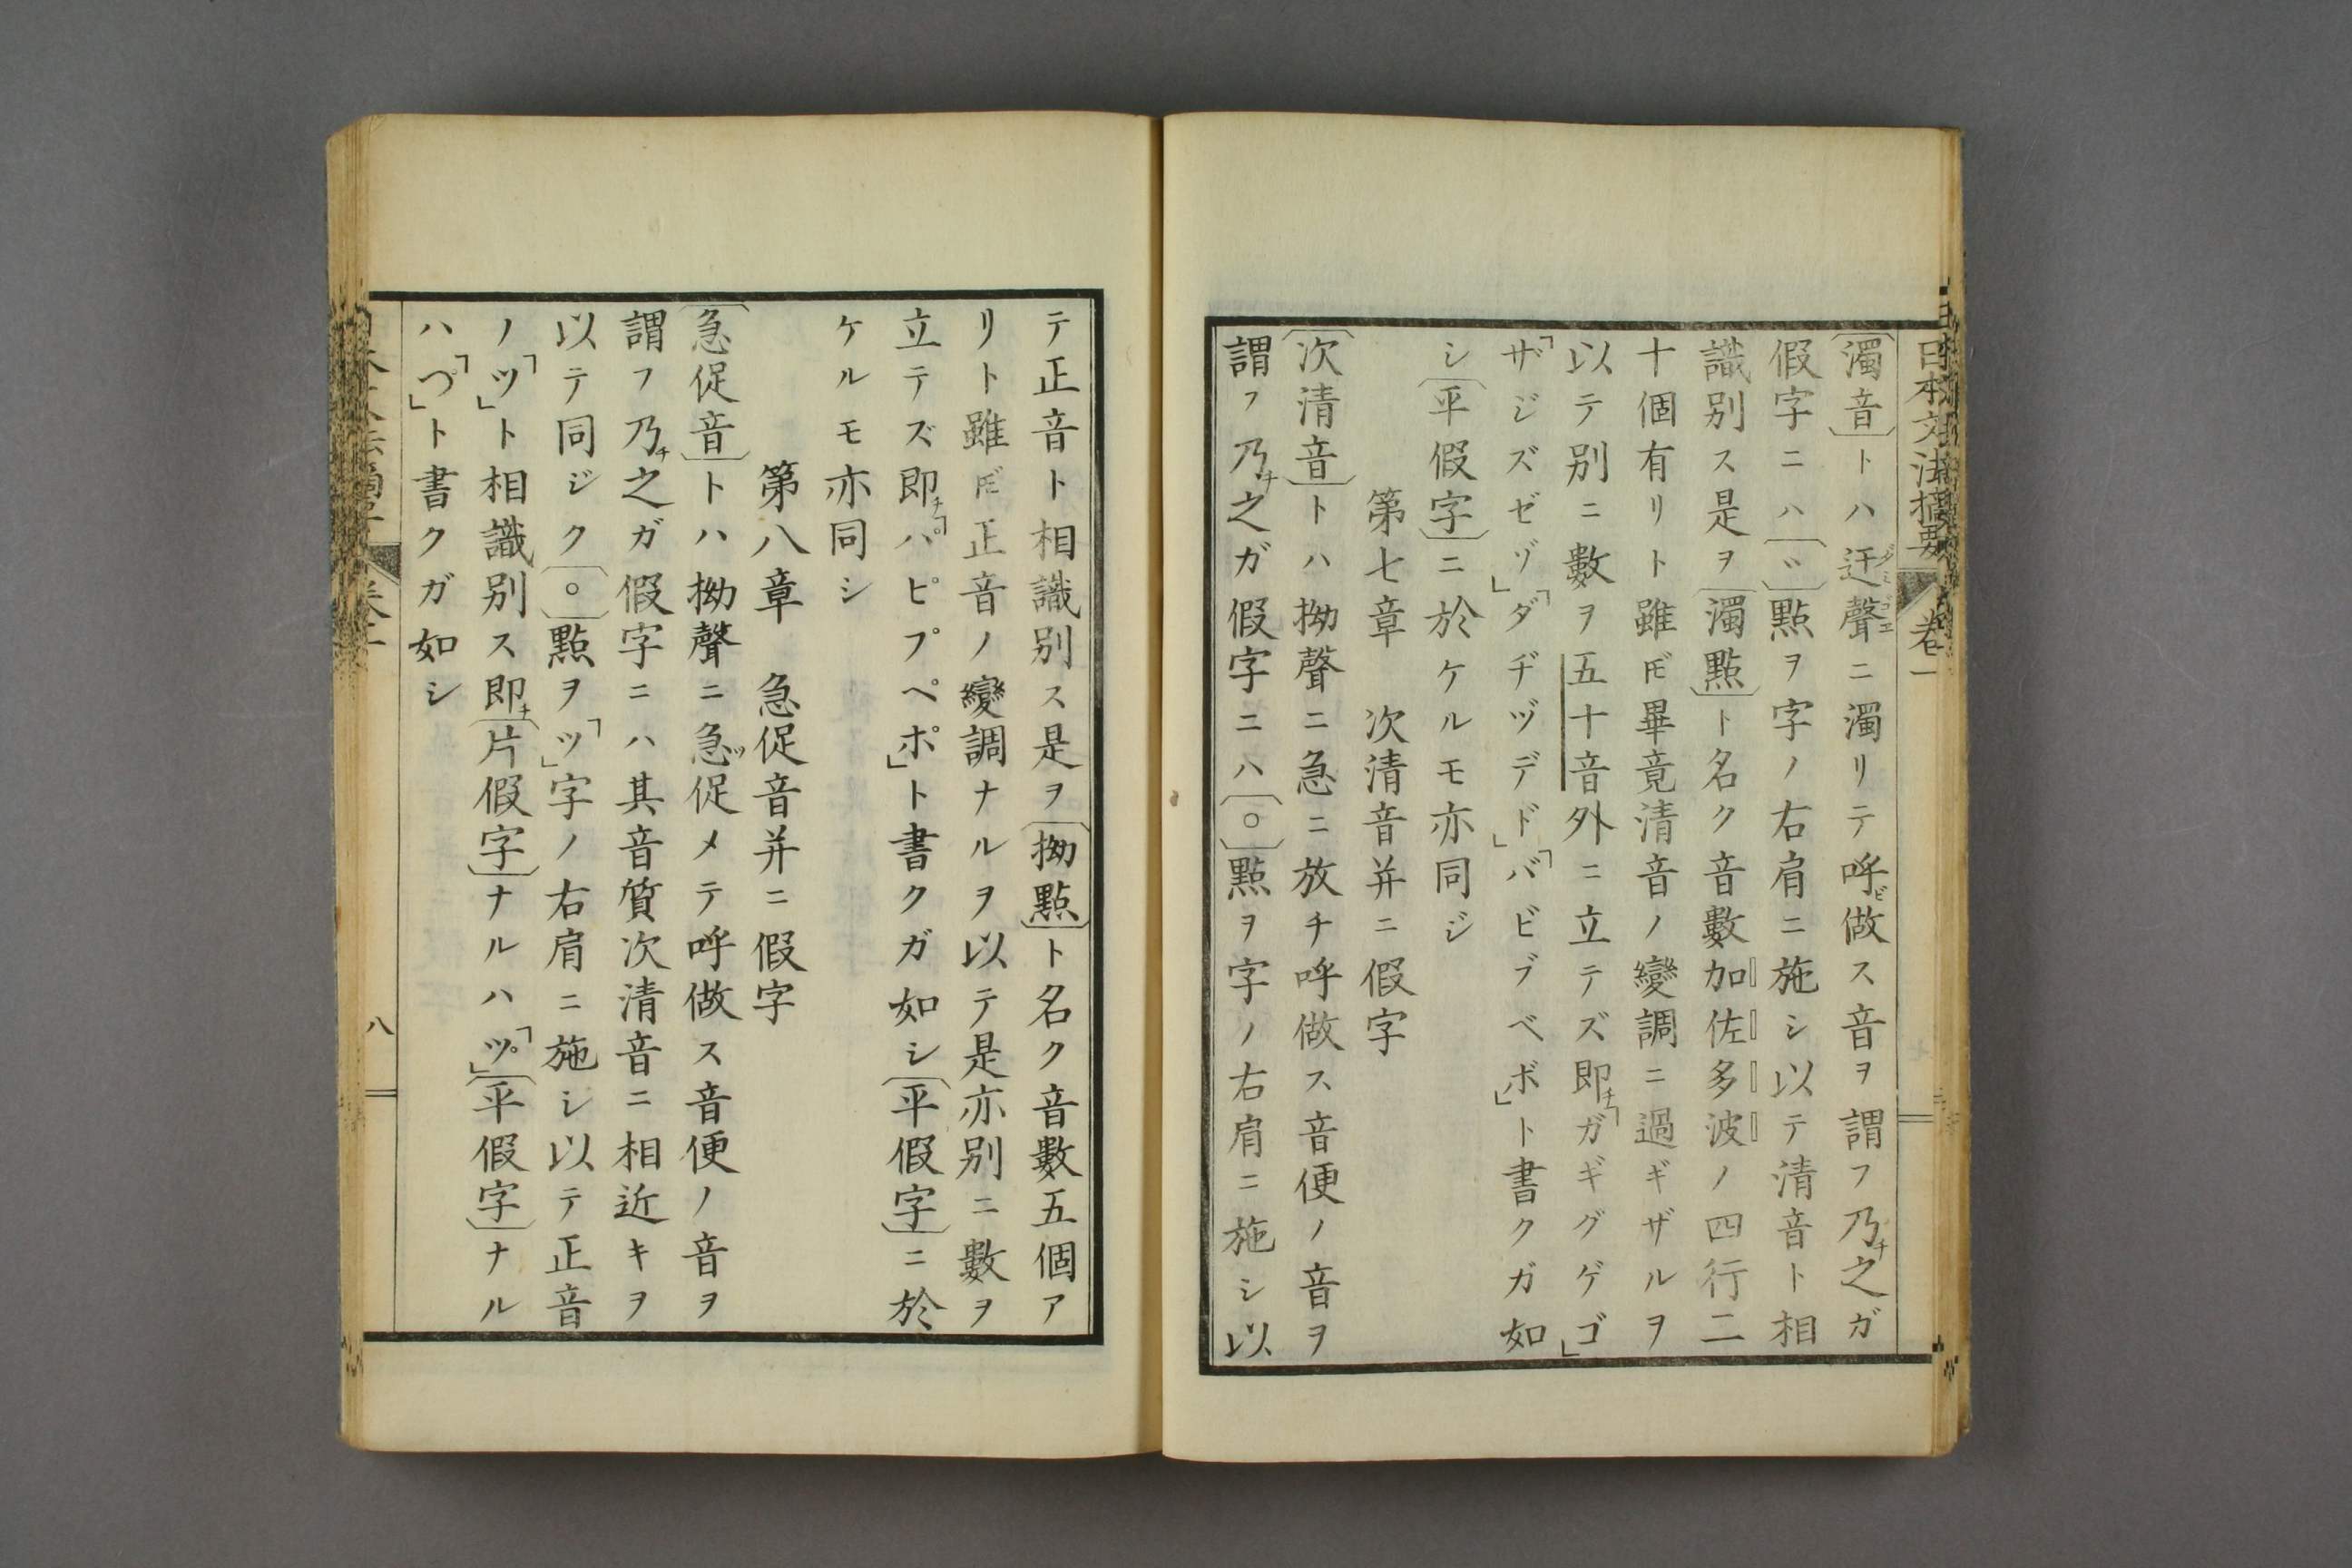 日本文法摘要 卷一
〔濁音〕トハ迂聲ニ濁リテ呼做ス音ヲ謂フ乃チ之ガ
假字ニハ〔〃〕點ヲ字ノ右肩ニ施シ以テ清音ト相
識別ス是ヲ〔濁點〕ト名ク音數加佐多波ノ四行二
十個有リト雖ドモ畢竟清音ノ變調ニ過ギザルヲ
以テ別ニ數ヲ五十音外ニ立テズ即チ「ガギグゲゴ」
「ザジズゼゾ」「ダヂヅデド」「バビブベボ」ト書クガ如
シ〔平假字〕ニ於ケルモ亦同ジ
第七章 次清音并ニ假字
〔次清音〕トハ拗聲ニ急ニ放チ呼做ス音便ノ音ヲ
謂フ乃チ之ガ假字ニハ〔○〕點ヲ字ノ右肩ニ施シ以
テ正音ト相識別ス是ヲ〔拗點〕ト名ク音數五個ア
リト雖𪜈正音ノ變調ナルヲ以テ是亦別ニ數ヲ
立テズ即チ「パピプペポ」ト書クガ如シ〔平假字〕ニ於
ケルモ亦同シ
第八章 急促音并ニ假字
〔急促音〕トハ拗聲ニ急ッ促メテ呼做ス音便ノ音ヲ
謂フ乃チ之ガ假字ニハ其音質次清音ニ相近キヲ
以テ同ジク〔○〕點ヲ「ツ」字ノ右肩ニ施シ以テ正音
ノ「ツ」ト相識別ス即チ〔片假字〕ナルハ「ツ゚」〔平假字〕ナル
ハ「つ゚」ト書クガ如シ
八